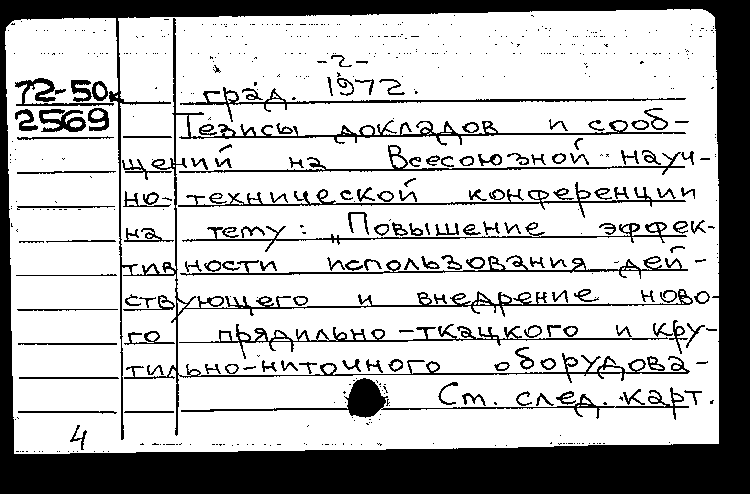 -2-
72-50к град. 1972.
2569 Тезисы докладов и сооб-
щений на Всесоюзной науч-
но-технической конференции
на тему: „Повышение эффек-
тивности использования дей-
ствующего и внедрение ново-
го прядильно-ткацкого и кру-
тильно-ниточного оборудова-
См. след. карт.
4